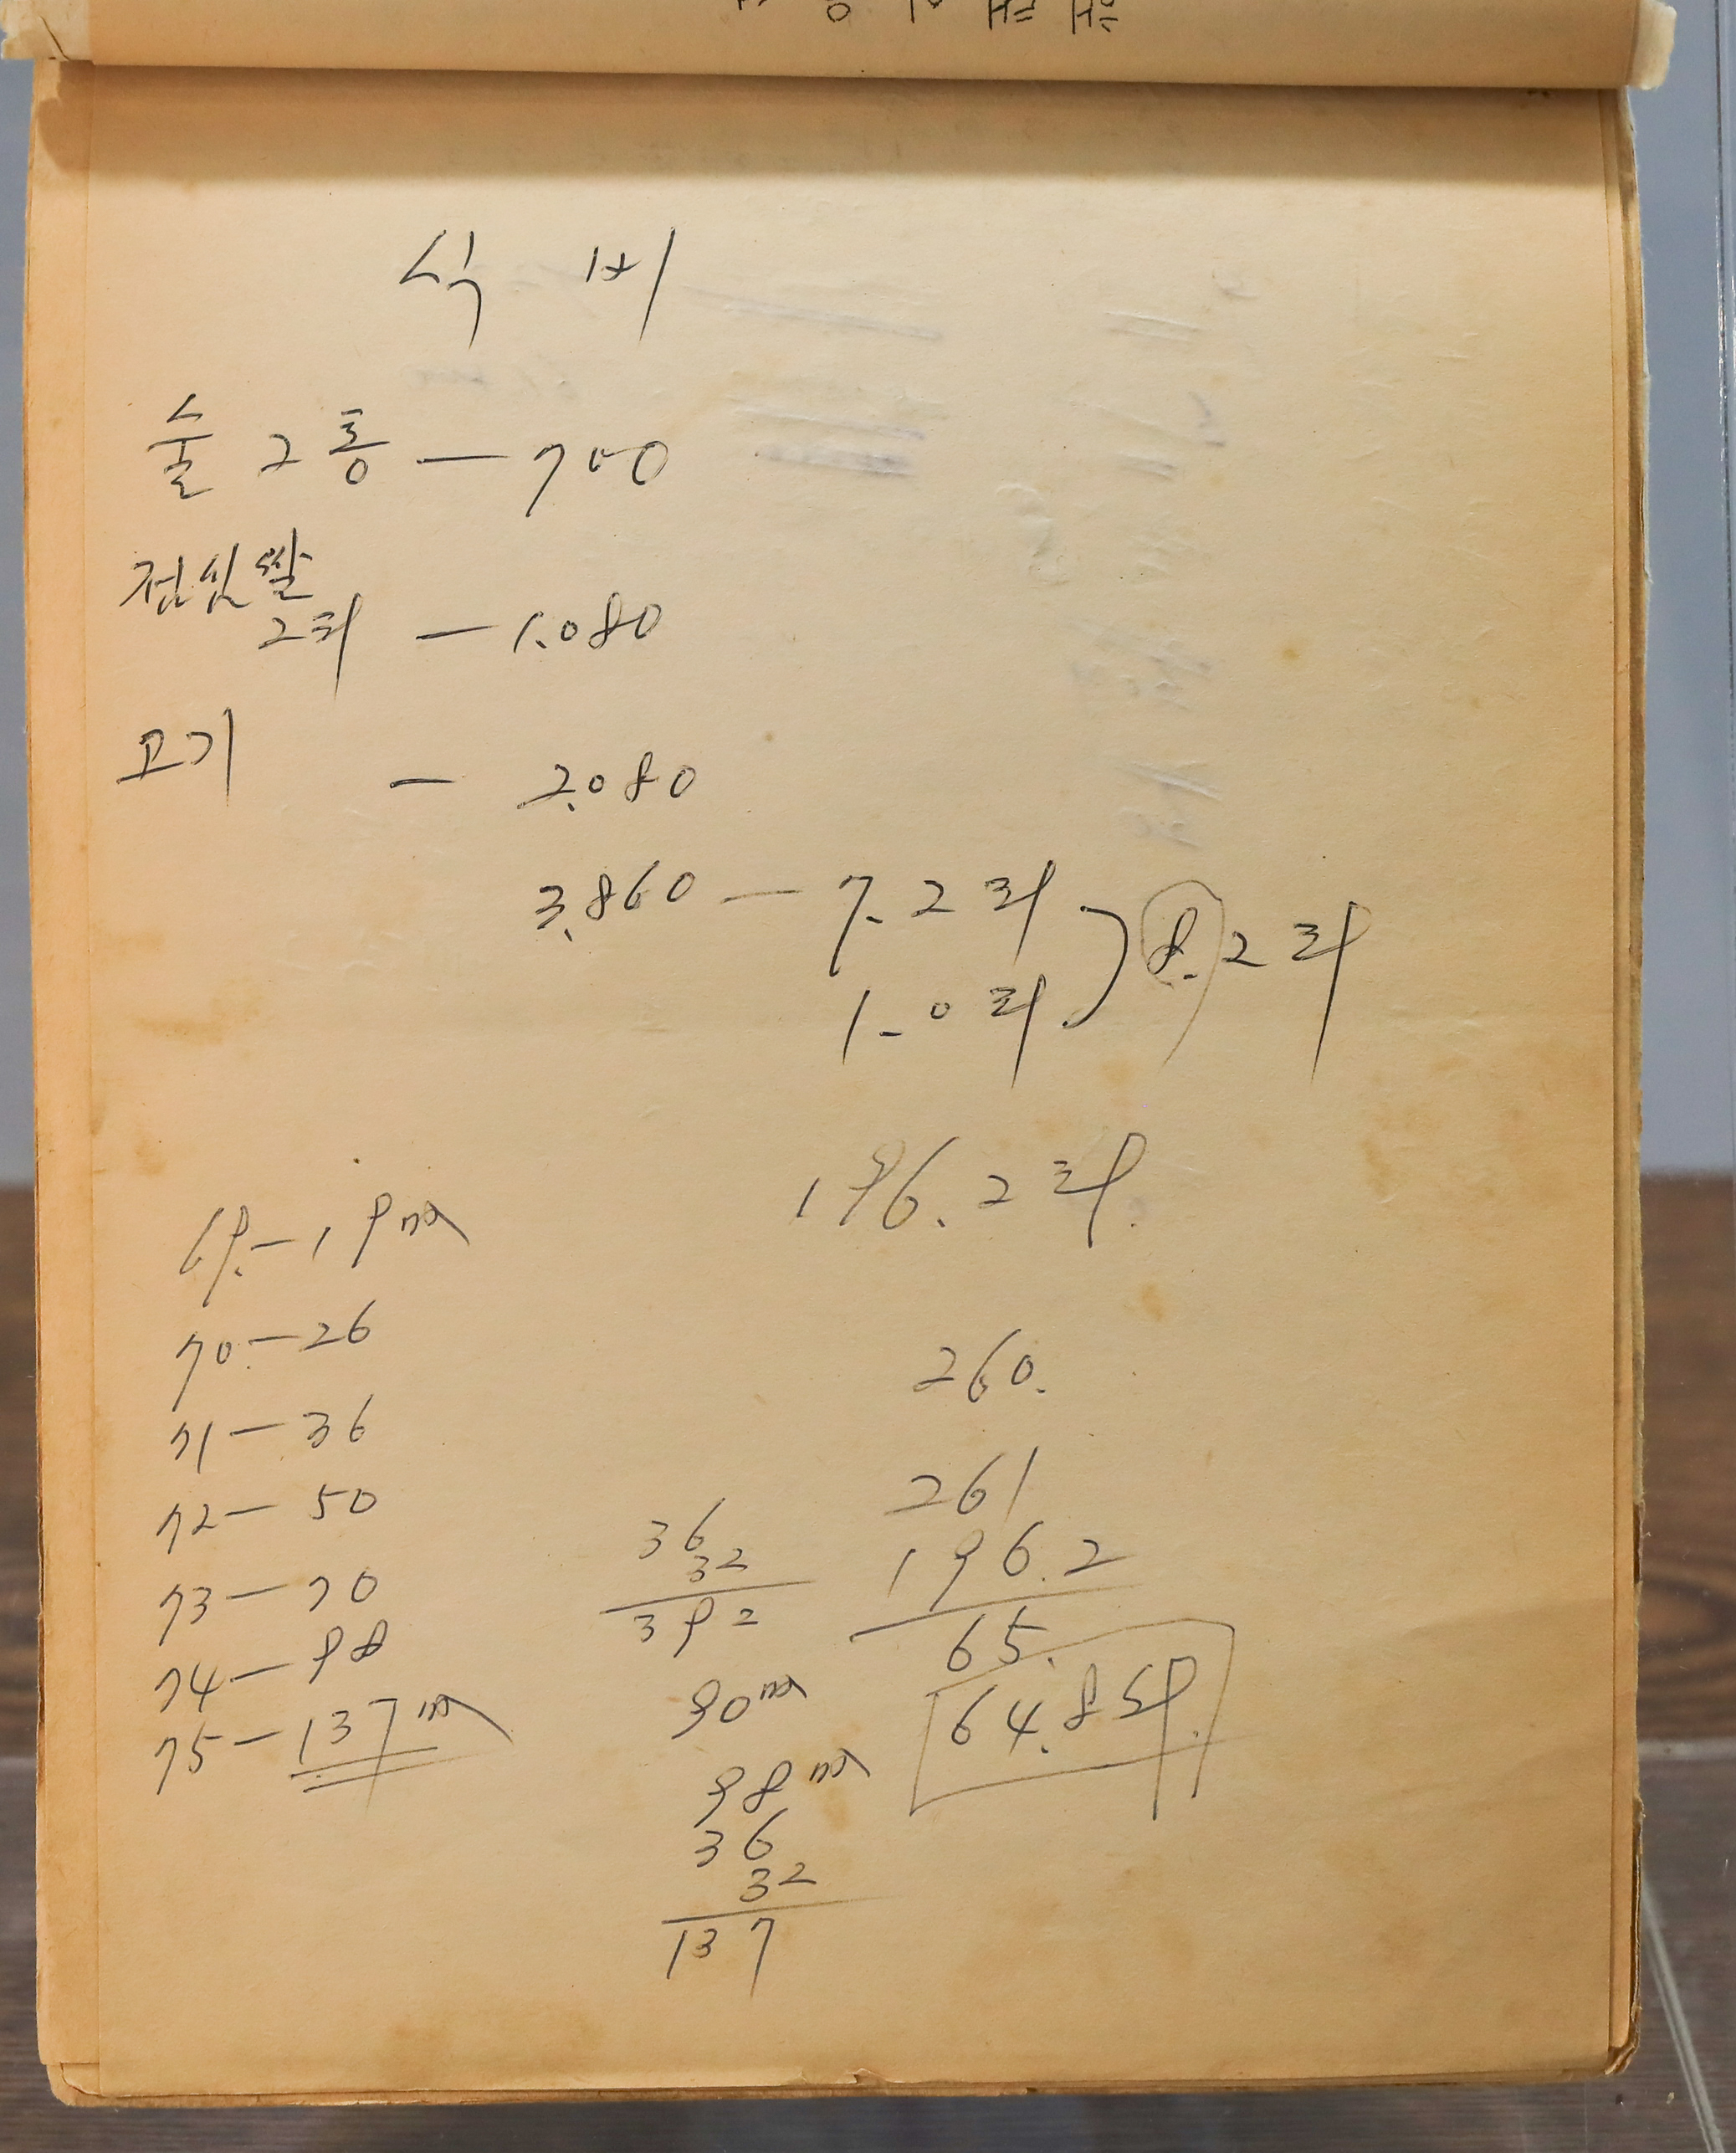 식 비
술 2통 — 700
점심쌀
2되 — 1.080
고기 — 2.080
3.860 — 7.2되
1.0되
8.2되
196.2되
69.—19m
70.—26
71—36
72—50
73—70
74—98
75—137m
260.
261
196.2
65.
64.8되
36
32
392
90m
98m
36
32
137